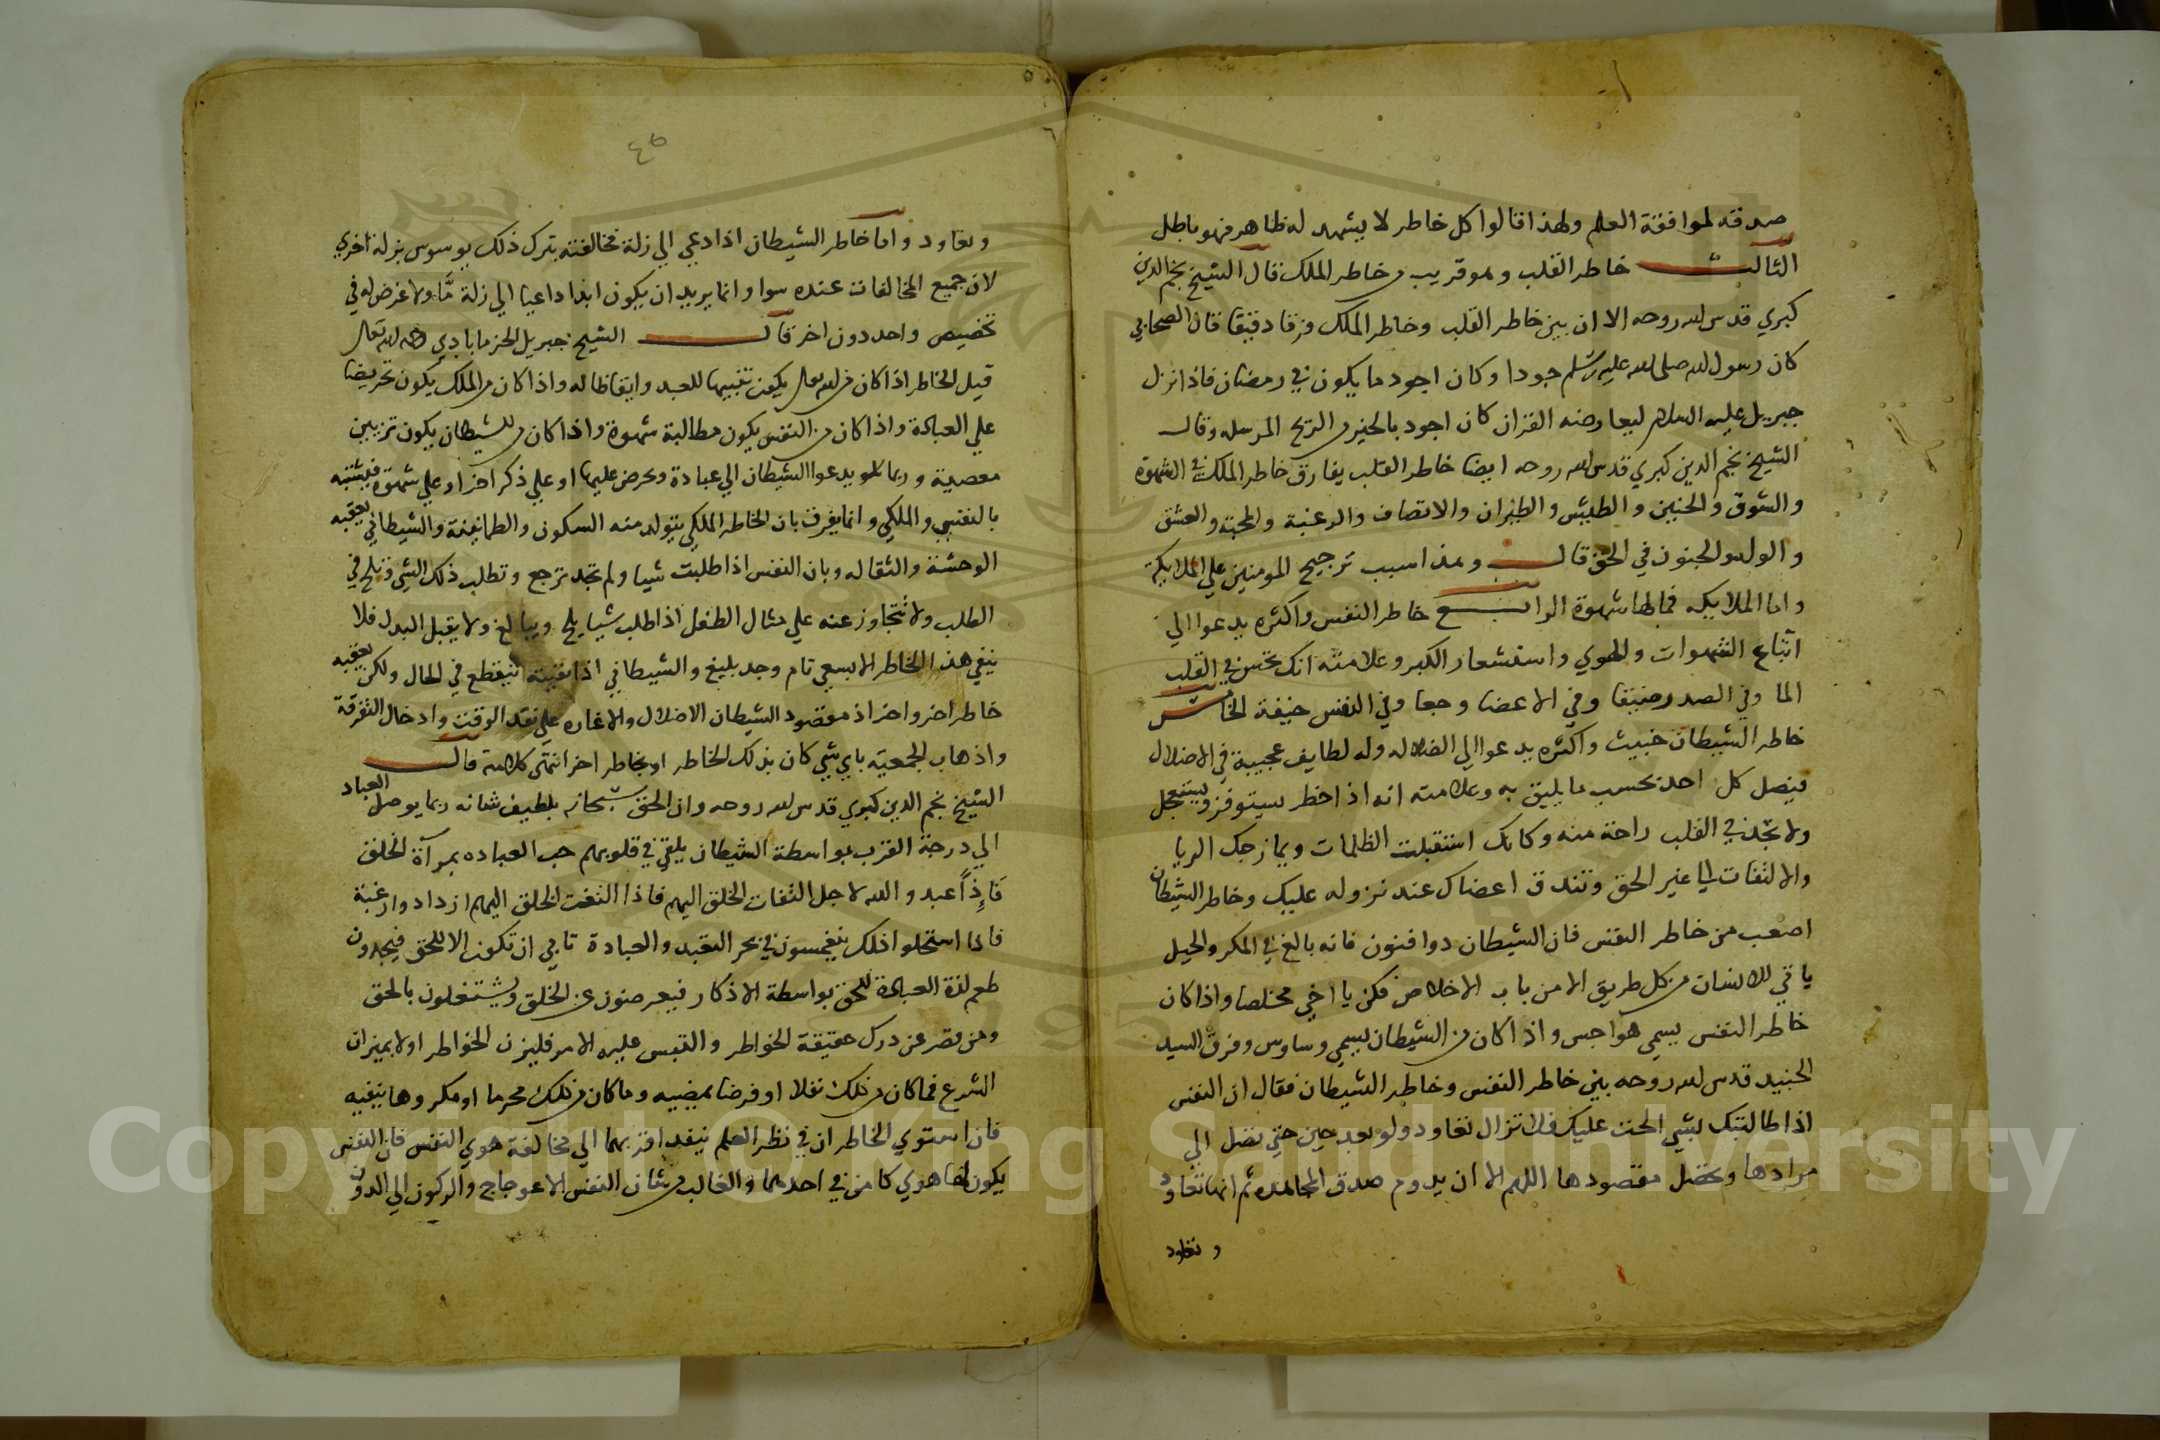 صدقه لموافقة العلم ولهذا قالوا كل خاطر لا يشهد له ظاهر فهو باطل
الثالث خاطر القلب وهو قريب من خاطر الملك قال الشيخ نجم الدين
كبري قدس الله روحه الا ان بين خاطر القلب وخاطر الملك فرقا دقيقا قال الصحابي
كان رسول الله صلى الله عليه وسلم جودا وكان اجود ما يكون في رمضان فاذا نزل
جبريل عليه السلام ليعارضه القران كان اجود بالخير من الريح المرسله وقال
الشيخ نجم الدين كبري قدس الله روحه ايضا خاطر القلب يفارق خاطر الملك في الشهوة
والشوق والحنين والطيش والطيران والاتصاف والرغبة والمحبة والعشق
والوله والجنون في الحق قال وهذا سبب ترجيح المومنين علي الملايكة
واما الملايكه فما لها شهوة الرابع خاطر النفس واكثره يدعوا الي
اتباع الشهوات والهوي واستشعار الكبر وعلامته انك تحس في القلب
الما وفي الصدر ضيقا وفي الاعضا وجعا وفي النفس خيفة الخامس
خاطر الشيطان خبيث واكثره يدعوا الي الضلاله وله لطايف عجيبة في الاضلال
فيضل كل احد بحسب ما يليق به وعلامته انه اذا خطر يستوفز ويستعجل
ولا تجد في القلب راحة منه وكانك استقبلت الظلمات ويمازجك الريا
والالتفات الي غير الحق وتندق اعضاك عند نزوله عليك وخاطر الشيطان
اصعب من خاطر النفس فان الشيطان ذوا فنون فانه بالغ في المكر والحيل
ياتي للانسان من كل طريق الا من باب الاخلاص فكن يا اخي مخلصا واذا كان
خاطر النفس يسمي هواجس واذا كان من الشيطان يسمي وساوس وفرق السيد
الجنيد قدس الله روحه بين خاطر النفس وخاطر الشيطان فقال ان النفس
اذا طالبتك بشي الحت عليك فلا تزال تعاود ولو بعد حين حتي تصل الي
مرادها وتحصل مقصودها اللهم الا ان يدوم صدق المجاهده ثم انها تعاود
وتعاود
٤٥
وتعاود واما خاطر الشيطان اذا دعي الي زلة فخالفته بترك ذلك يوسوس بزلة اخري
لان جميع المخالفات عنده سوا وانما يريد ان يكون ابدا داعيا الي زلة ما ولا غرض له في
تخصيص واحد دون اخر قال الشيخ جبريل الخرماباذي رحمه الله تعالى
قيل الخاطر اذا كان من الله تعالى يكون تنبيها للعبد وايقاظا له واذا كان من الملك يكون تحريضا
علي العبادة واذا كان من النفس يكون مطالبة شهوة واذا كان من الشيطان يكون تزيين
معصية وربما يدعوا الشيطان الي عبادة ويحرض عليها او علي ذكر اخر او علي شهوة فيشتبه
بالنفسي والملكي وانما يفرق بان الخاطر الملكي يتولد منه السكون والطمانينة والشيطاني يعقبه
الوحشة والثقاله وبان النفس اذا طلبت شيا ولم تجد ترجع وتطلب ذلك الشي وتلح في
الطلب ولا تتجاوز عنه علي مثال الطفل اذا طلب شيا يلح ويبالغ ولا يقبل البدل فلا
ينفي هذا الخاطر الا بسعي تام وجد بليغ والشيطاني اذا نفيته انقطع في الحال ولكن يعقبه
خاطر اخر واخر اذ مقصود الشيطان الاضلال والاغاره علي نقد الوقت وادخال التفرقة
واذهاب الجمعية باي شي كان بذلك الخاطر او بخاطر اخر انتهى كلامه قال
الشيخ نجم الدين كبري قدس الله روحه وان الحق سبحانه بلطيف شانه ربما يوصل العباد
الي درجة القرب بواسطة الشيطان يلقي في قلوبهم حب العباده بمرآة الخلق
فإذاً عبدوا الله لاجل التفات الخلق اليهم فاذا التفت الخلق اليهم ازدادوا رغبة
فاذا استحلوا ذلك ينغمسون في بحر التعبد والعبادة تابي ان تكون الا للحق فيجدون
طعم لذة العبادة للحق بواسطة الاذكار فيعرضون عن الخلق ويشتغلون بالحق
ومن قصر عن درك حقيقة الخواطر والتبس عليه الامر فليزن الخواطر اولا بميزان
الشرع فما كان من ذلك نفلا او فرضا يمضيه وما كان من ذلك محرما او مكروها ينفيه
فان استوي الخاطران في نظر العلم ينفذ اقربهما الي مخالفة هوي النفس فان النفس
يكون لها هوي كامن في احدهما والغالب من شان النفس الاعوجاج والركون الي الدون
Copyright © King Saud University